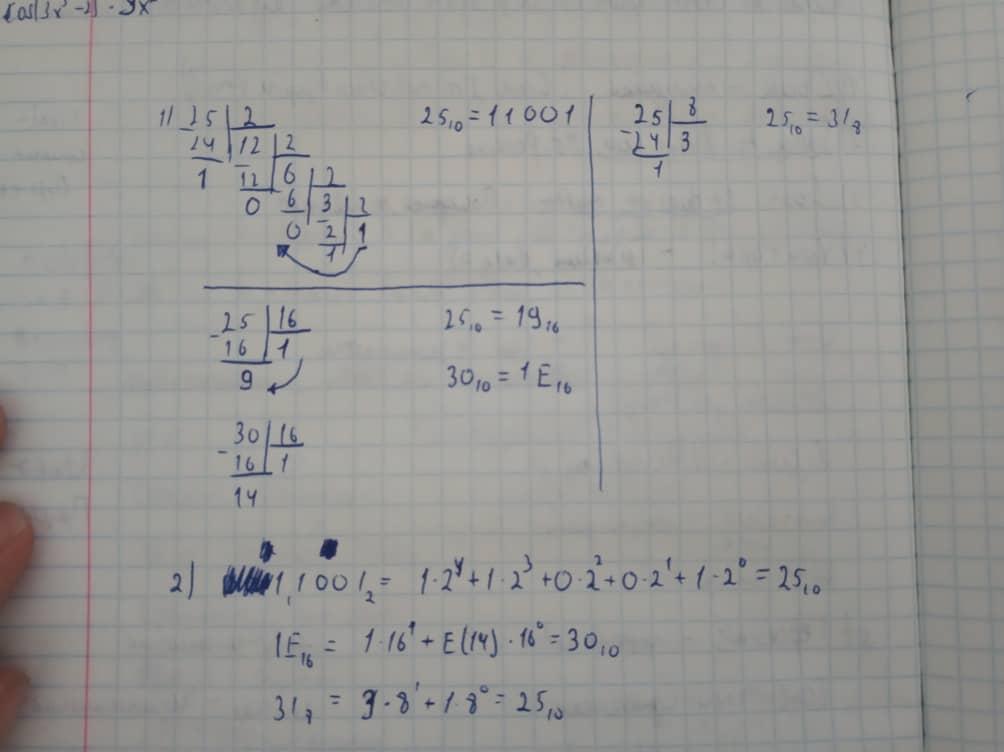 cos(3x² - 2) · 9x²
1) 25 | 2
24 | 12 | 2
1 12 | 6 | 2
0 6 | 3 | 2
0 2 | 1
1
25₁₀ = 11001
25 | 8
-24 | 3
1
25₁₀ = 31₈
-25 | 16
16 | 1
9
25₁₀ = 19₁₆
30₁₀ = 1E₁₆
-30 | 16
16 | 1
14
2) 11001₂ = 1·2⁴ + 1·2³ + 0·2² + 0·2¹ + 1·2⁰ = 25₁₀
1E₁₆ = 1·16¹ + E(14)·16⁰ = 30₁₀
31₈ = 3·8¹ + 1·8⁰ = 25₁₀